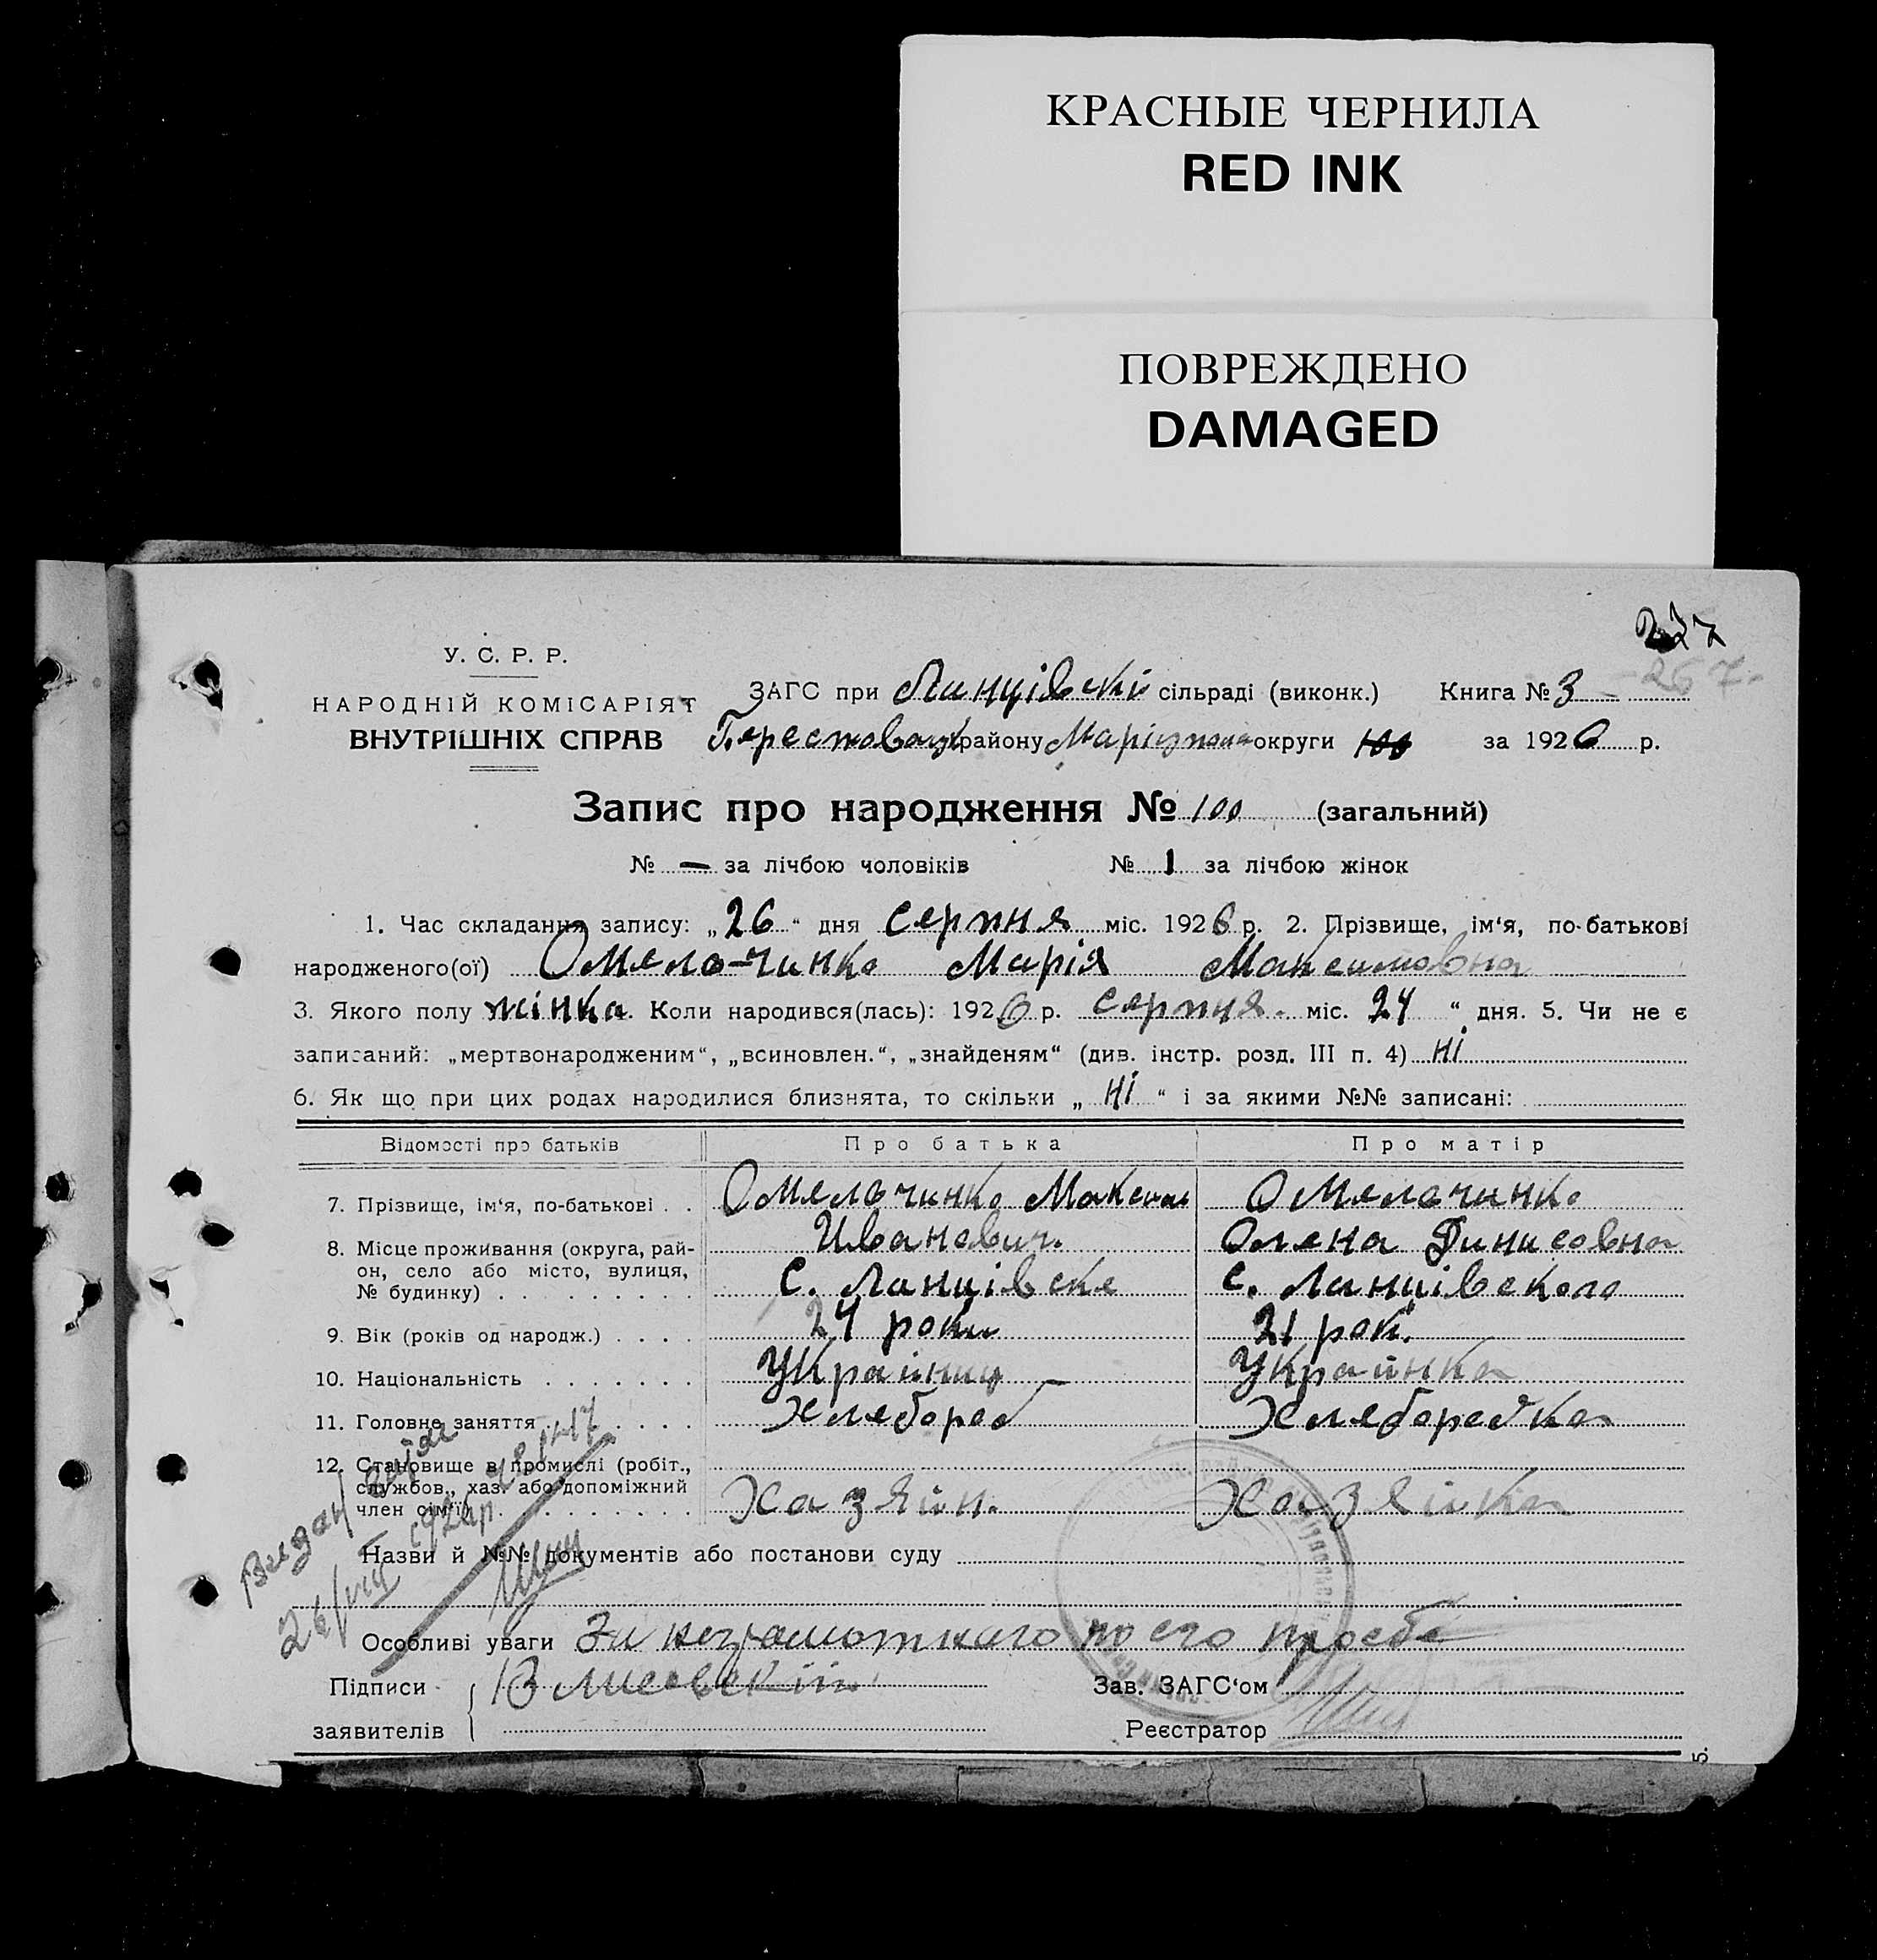 КРАСНЫЕ ЧЕРНИЛА
RED INK
ПОВРЕЖДЕНО
DAMAGED
267
У. С. Р. Р.
НАРОДНІЙ КОМІСАРІЯТ
ВНУТРІШНІХ СПРАВ
ЗАГС при Ланцівскі сільраді (виконк.) Книга № 3
району округи 100 за 1926 р.
Запис про народження № 100 (загальний)
№ — за лічбою чоловіків № 1 за лічбою жінок
1. Час складання запису: „26“ дня серпня міс. 1926 р. 2. Прізвище, ім‘я, по-батькові
народженого(ої) Омельчинко Марія Максимовна
3. Якого полу жінка. Коли народився(лась): 1926 р. серпня. міс. 24 “ дня. 5. Чи не є
записаний: „мертвонародженим“, „всиновлен.“, „знайденям“ (див. інстр. розд. III п. 4) ні
6. Як що при цих родах народилися близнята, то скільки „ ні “ і за якими №№ записані:
Відомості про батьків Про батька Про матір
7. Прізвище, ім‘я, по-батькові . . Омельчинко Максим Омельчинко
Иванович. Олена Динисовна
8. Місце проживання (округа, рай-
он, село або місто, вулиця,
№ будинку) . . . . . . . . . с. Ланцівске с. Ланцівского
9. Вік (років од народж.) . . . . 24 роки 21 рок.
10. Національність . . . . . . . Украіниц Украинка
11. Головне заняття . . . . . . . Хлебороб Хлеборобка
12. Становище в промислі (робіт.,
службов., хаз. або допоміжний
член сім‘ї) . . . . . . . . . Хазяін. Хазяіка
Назви й №№ документів або постанови суду
Особливі уваги За неграмотного по его просбе
Підписи
Зав. ЗАГС‘ом
заявителів
Реєстратор
5.